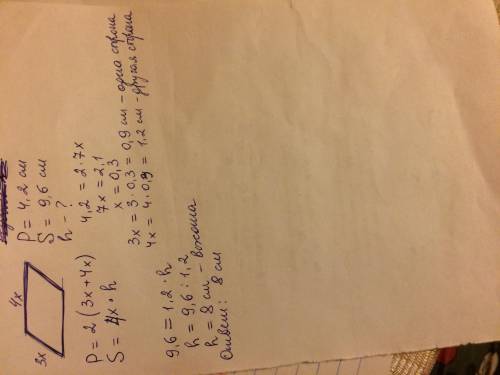 4x
3x
P = 4,2 см
S = 9,6 см
h - ?
P = 2 (3x + 4x)
S = 4x · h
4,2 = 2 · 7x
7x = 2,1
x = 0,3
3x = 3 · 0,3 = 0,9 см - одна сторона
4x = 4 · 0,3 = 1,2 см - другая сторона
9,6 = 1,2 · h
h = 9,6 : 1,2
h = 8 см - высота
Ответ: 8 см